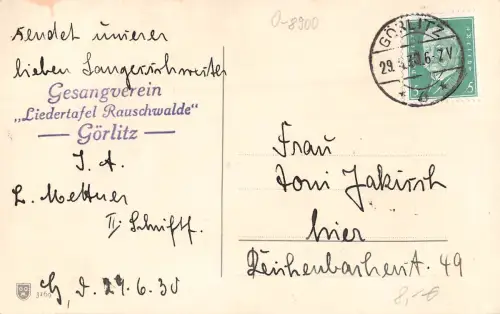 sendet unserer
lieben Sangesschwester
Gesangverein
„Liedertafel Rauschwalde"
— Görlitz —
I. A.
L. Mettner
II. Schriftf.
G, d. 29.6.30
3260
0-8900
GÖRLITZ
29.6.30.6-7V
5
Frau
Toni Jakirsch
hier
Reichenbacherst. 49
8,-€